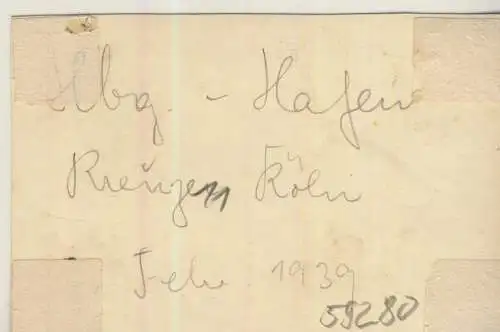 Hbg. - Hafen
Kreuzer Köln
Febr. 1939
59280